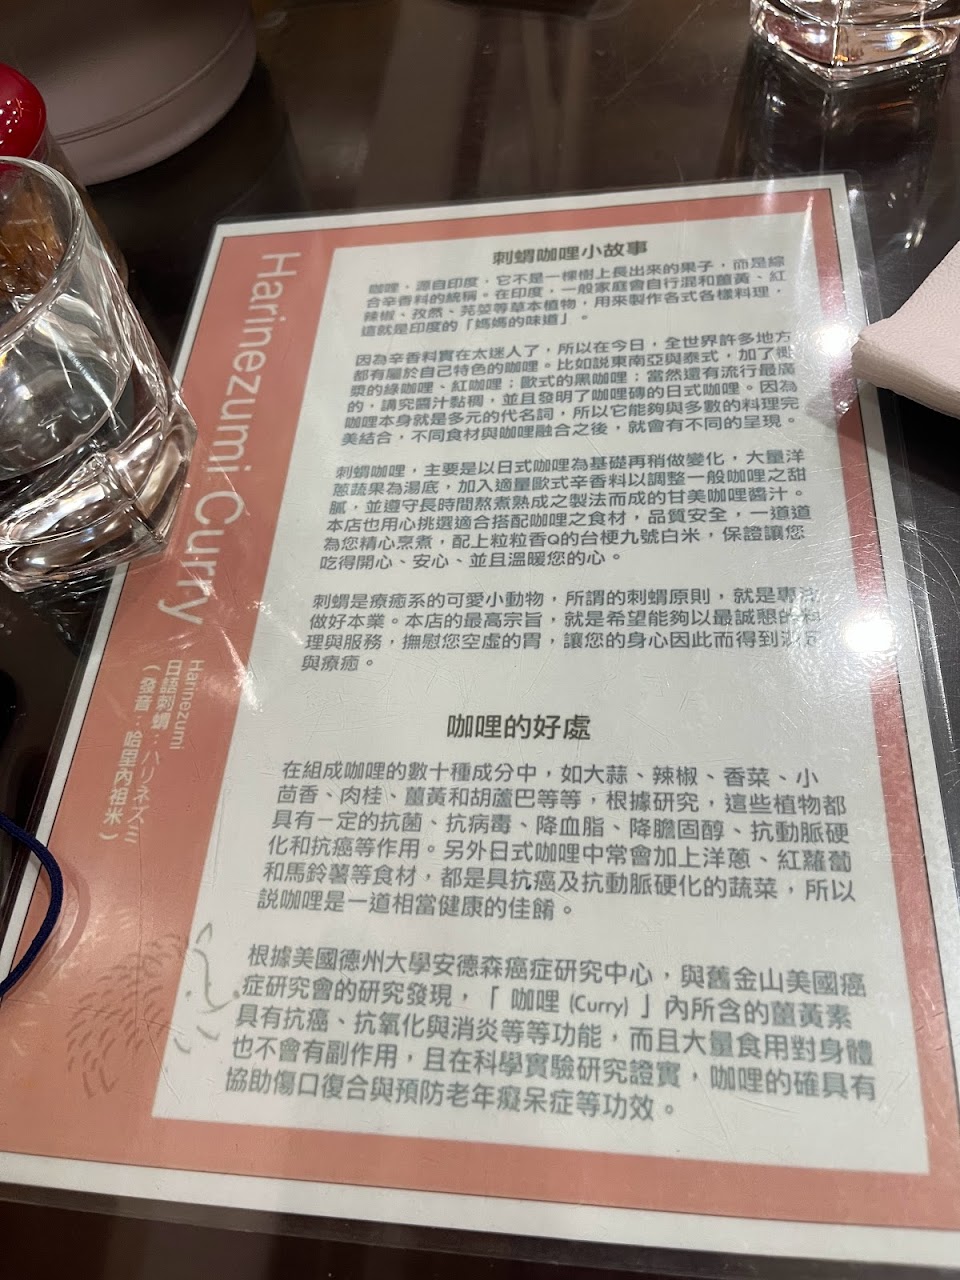 Harinezumi Curry
Harinezumi
日語刺蝟：ハリネズミ
（發音：哈里內祖米）
刺蝟咖哩小故事
咖哩，源自印度，它不是一棵樹上長出來的果子，而是綜
合辛香料的統稱。在印度，一般家庭會自行混和薑黃、紅
辣椒、孜然、芫荽等草本植物，用來製作各式各樣料理，
這就是印度的「媽媽的味道」。
因為辛香料實在太迷人了，所以在今日，全世界許多地方
都有屬於自己特色的咖哩。比如說東南亞與泰式，加了椰
漿的綠咖哩、紅咖哩；歐式的黑咖哩；當然還有流行最廣
的，講究醬汁黏稠，並且發明了咖哩磚的日式咖哩。因為
咖哩本身就是多元的代名詞，所以它能夠與多數的料理完
美結合，不同食材與咖哩融合之後，就會有不同的呈現。
刺蝟咖哩，主要是以日式咖哩為基礎再稍做變化，大量洋
蔥蔬果為湯底，加入適量歐式辛香料以調整一般咖哩之甜
膩，並遵守長時間熬煮熟成之製法而成的甘美咖哩醬汁。
本店也用心挑選適合搭配咖哩之食材，品質安全，一道道
為您精心烹煮，配上粒粒香Q的台梗九號白米，保證讓您
吃得開心、安心、並且溫暖您的心。
刺蝟是療癒系的可愛小動物，所謂的刺蝟原則，就是專注
做好本業。本店的最高宗旨，就是希望能夠以最誠懇的料
理與服務，撫慰您空虛的胃，讓您的身心因此而得到滿足
與療癒。
咖哩的好處
在組成咖哩的數十種成分中，如大蒜、辣椒、香菜、小
茴香、肉桂、薑黃和胡蘆巴等等，根據研究，這些植物都
具有一定的抗菌、抗病毒、降血脂、降膽固醇、抗動脈硬
化和抗癌等作用。另外日式咖哩中常會加上洋蔥、紅蘿蔔
和馬鈴薯等食材，都是具抗癌及抗動脈硬化的蔬菜，所以
說咖哩是一道相當健康的佳餚。
根據美國德州大學安德森癌症研究中心，與舊金山美國癌
症研究會的研究發現，「 咖哩 (Curry) 」內所含的薑黃素
具有抗癌、抗氧化與消炎等等功能，而且大量食用對身體
也不會有副作用，且在科學實驗研究證實，咖哩的確具有
協助傷口復合與預防老年癡呆症等功效。